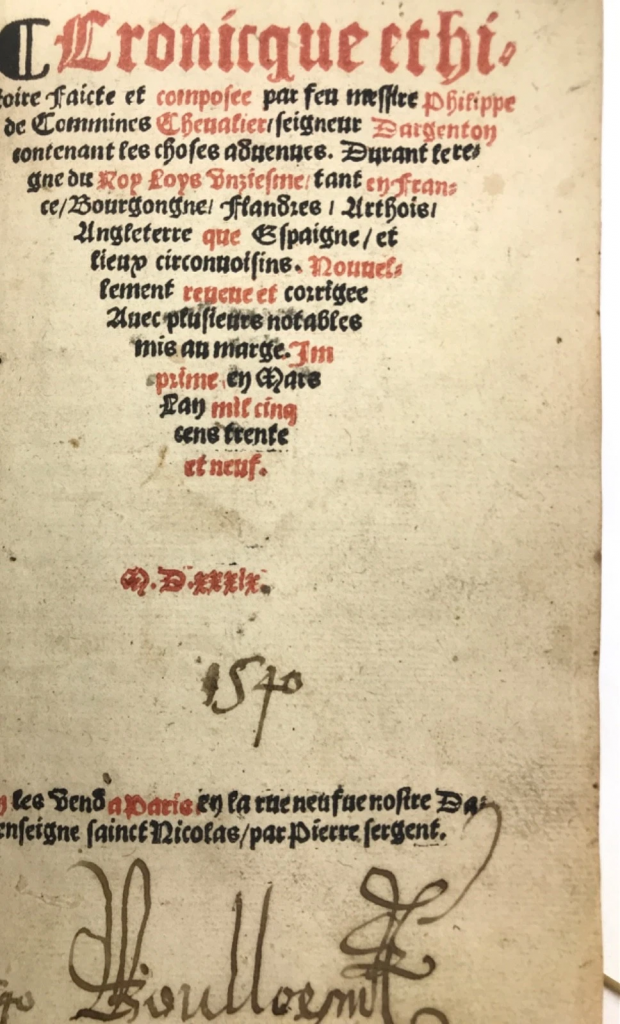 Cronicque et hi-
toire Faicte et composee par feu messire Philippe
de Commines Cheualier/ seigneur Dargenton
contenant les choses aduenues. Durant le re-
gne du Roy Loys Vnziesme/ tant en Fran-
ce/ Bourgongne/ Flandres/ Arthois/
Angleterre que Espaigne/ et
lieux circonuoisins. Nouuel-
lement reueue et corrigee
Auec plusieurs notables
mis au marge. Im
prime en Mars
Lan mil cinq
cens trente
et neuf.
M.D.xxxix.
1540
les vend a Paris en la rue neufue nostre Da-
enseigne sainct Nicolas/ par Pierre sergent.